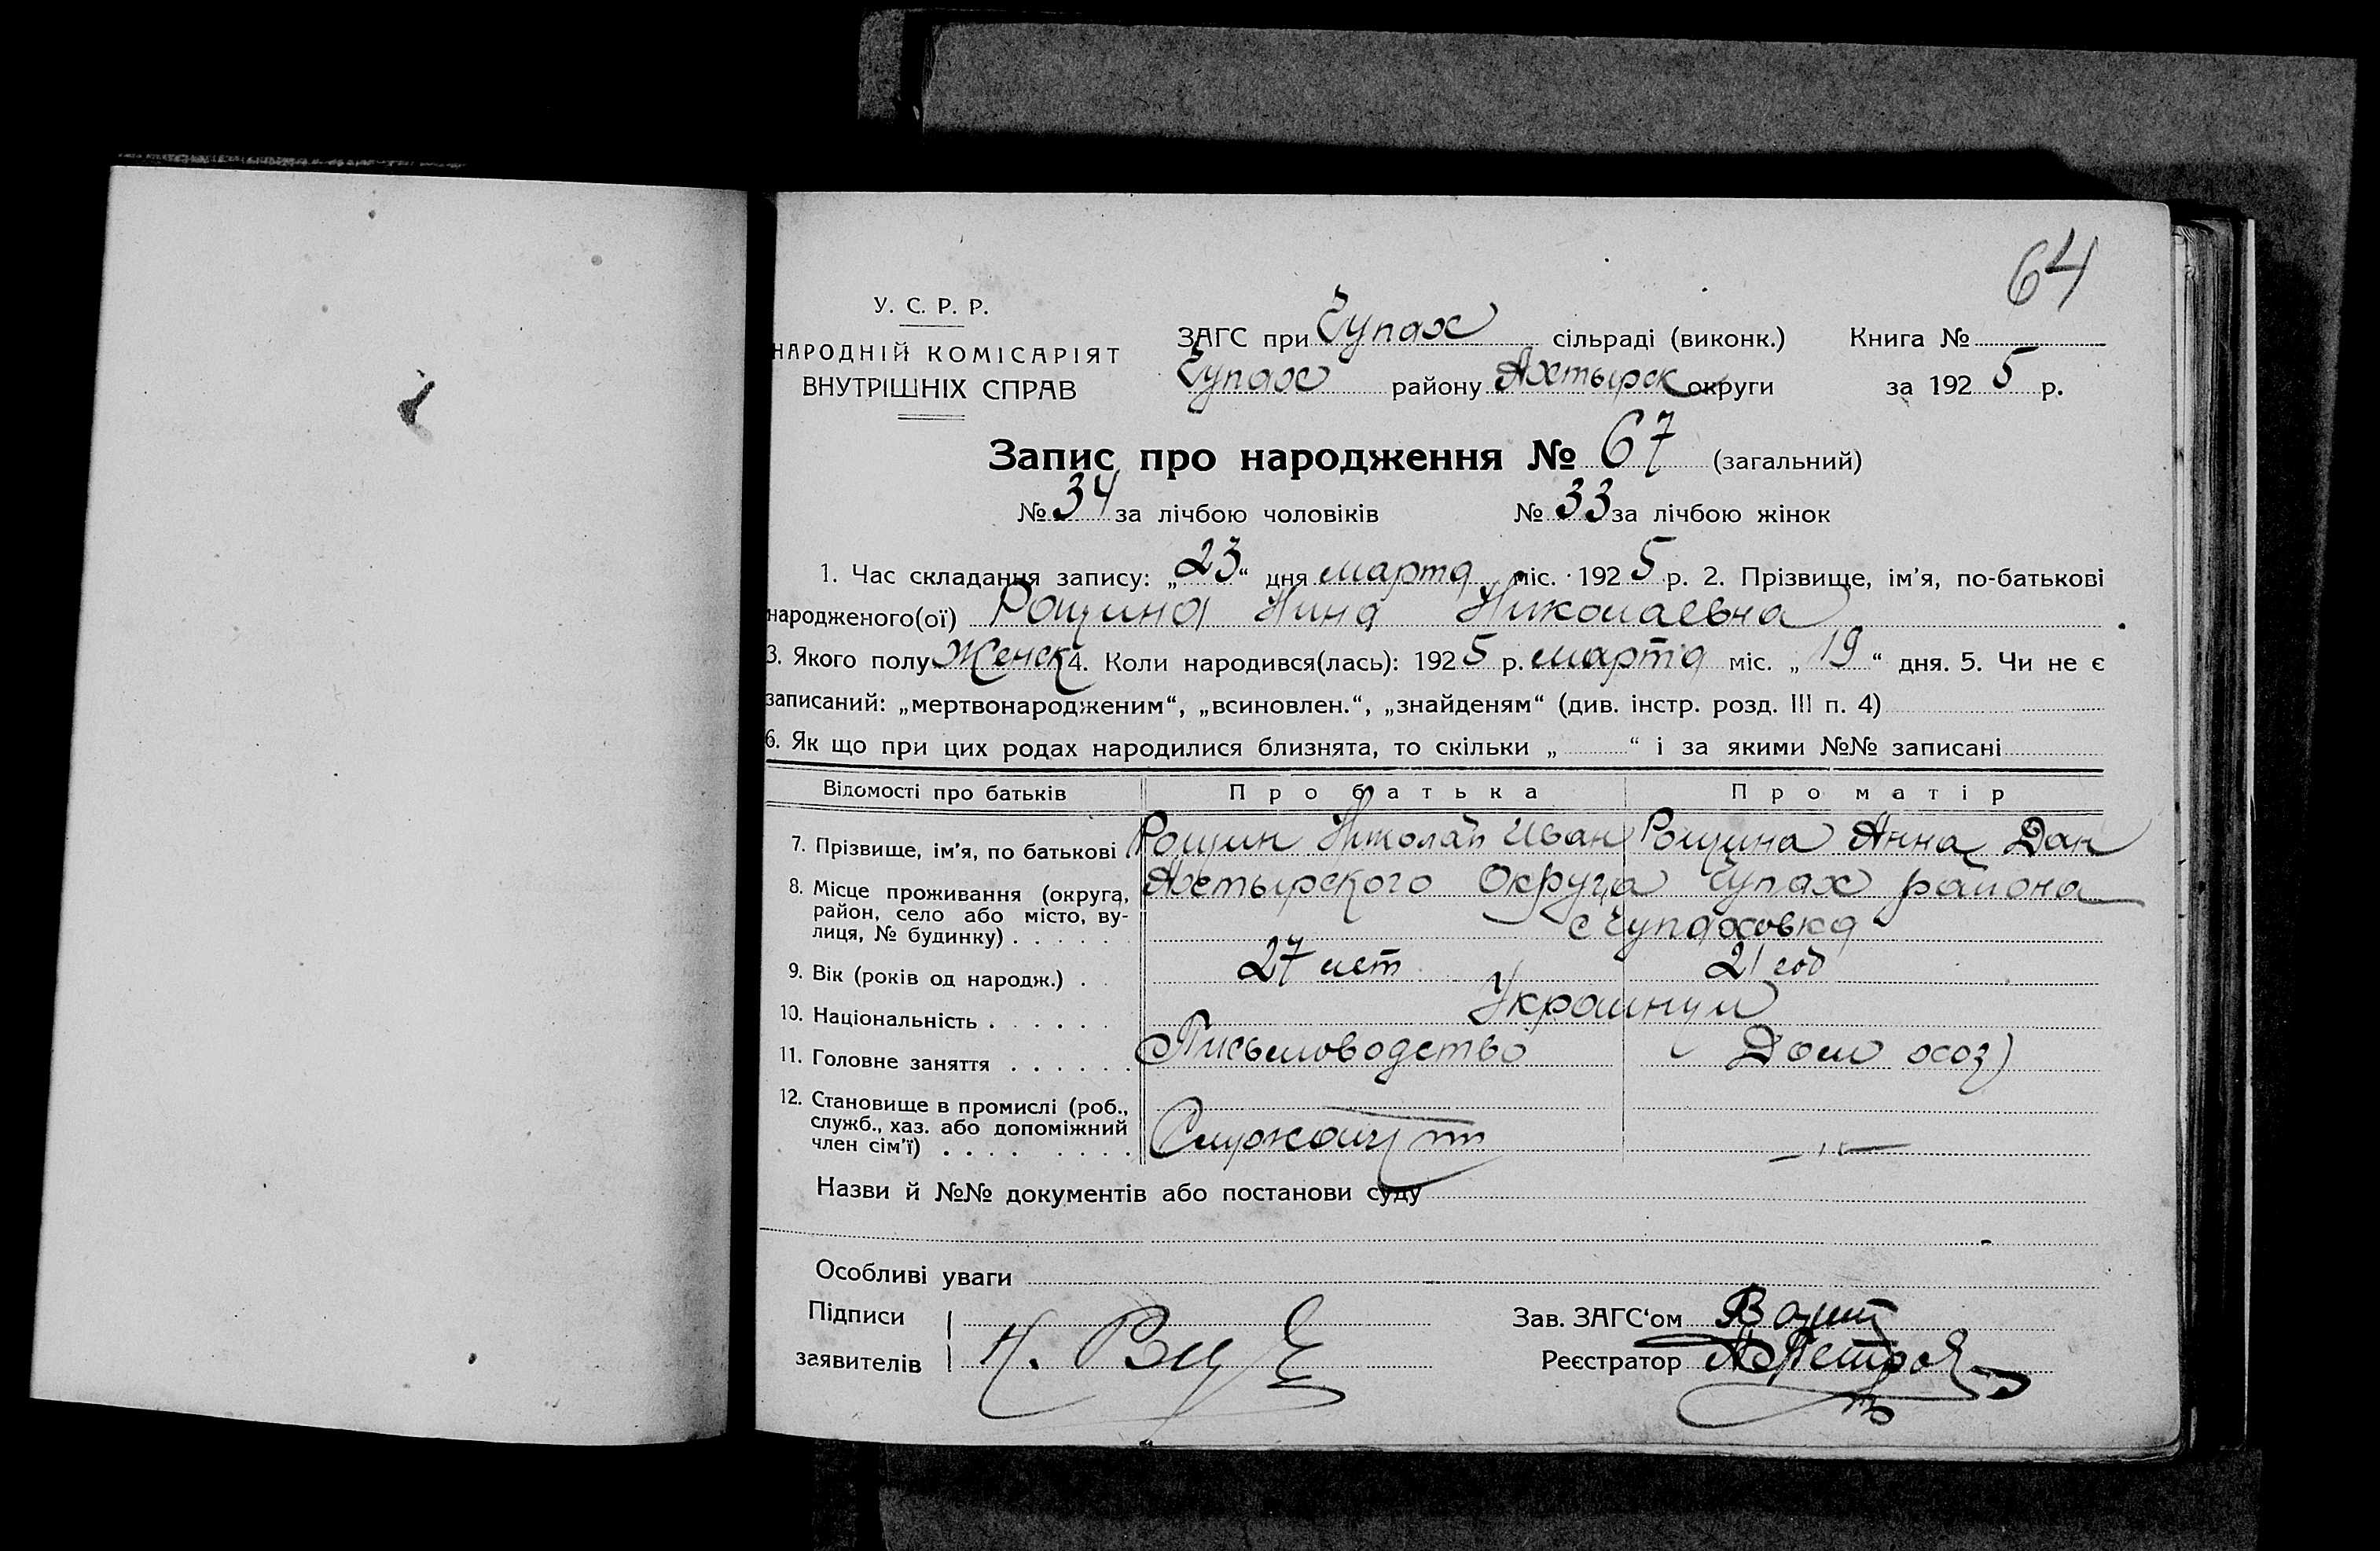 64
У. С. Р. Р.
НАРОДНІЙ КОМІСАРІЯТ
ВНУТРІШНІХ СПРАВ
ЗАГС при Чупах сільраді (виконк.) Книга №
Чупах району Ахтырск округи за 1925 р.
Запис про народження № 67 (загальний)
№ 34 за лічбою чоловіків № 33 за лічбою жінок
1. Час складання запису: „23“ дня марта міс. 1925 р. 2. Прізвище, ім’я, по-батькові
народженого(ої) Рощина Нина Николаевна
3. Якого полу Женск 4. Коли народився(лась): 1925 р. марта міс. „19“ дня. 5. Чи не є
записаний: „мертвонародженим“, „всиновлен.“, „знайденям“ (див. інстр. розд. III п. 4)
6. Як що при цих родах народилися близнята, то скільки „ “ і за якими №№ записані
Відомості про батьків Про батька Про матір
7. Прізвище, ім’я, по батькові Рощин Николай Иван Рощина Анна Дан
8. Місце проживання (округа, Ахтырского Округа Чупах района
район, село або місто, ву-
лиця, № будинку) . . . . . с Чупаховка
9. Вік (років од народж.) . . 27 лет 21 год
10. Національність . . . . . . Украинцы
11. Головне заняття . . . . . . Письмоводство Дом хоз
12. Становище в промислі (роб.,
служб., хаз. або допоміжний
член сім’ї) . . . . . . . . Служащий — „ —
Назви й №№ документів або постанови суду
Особливі уваги
Підписи
заявителів Н.
Зав. ЗАГС‘ом
Реєстратор